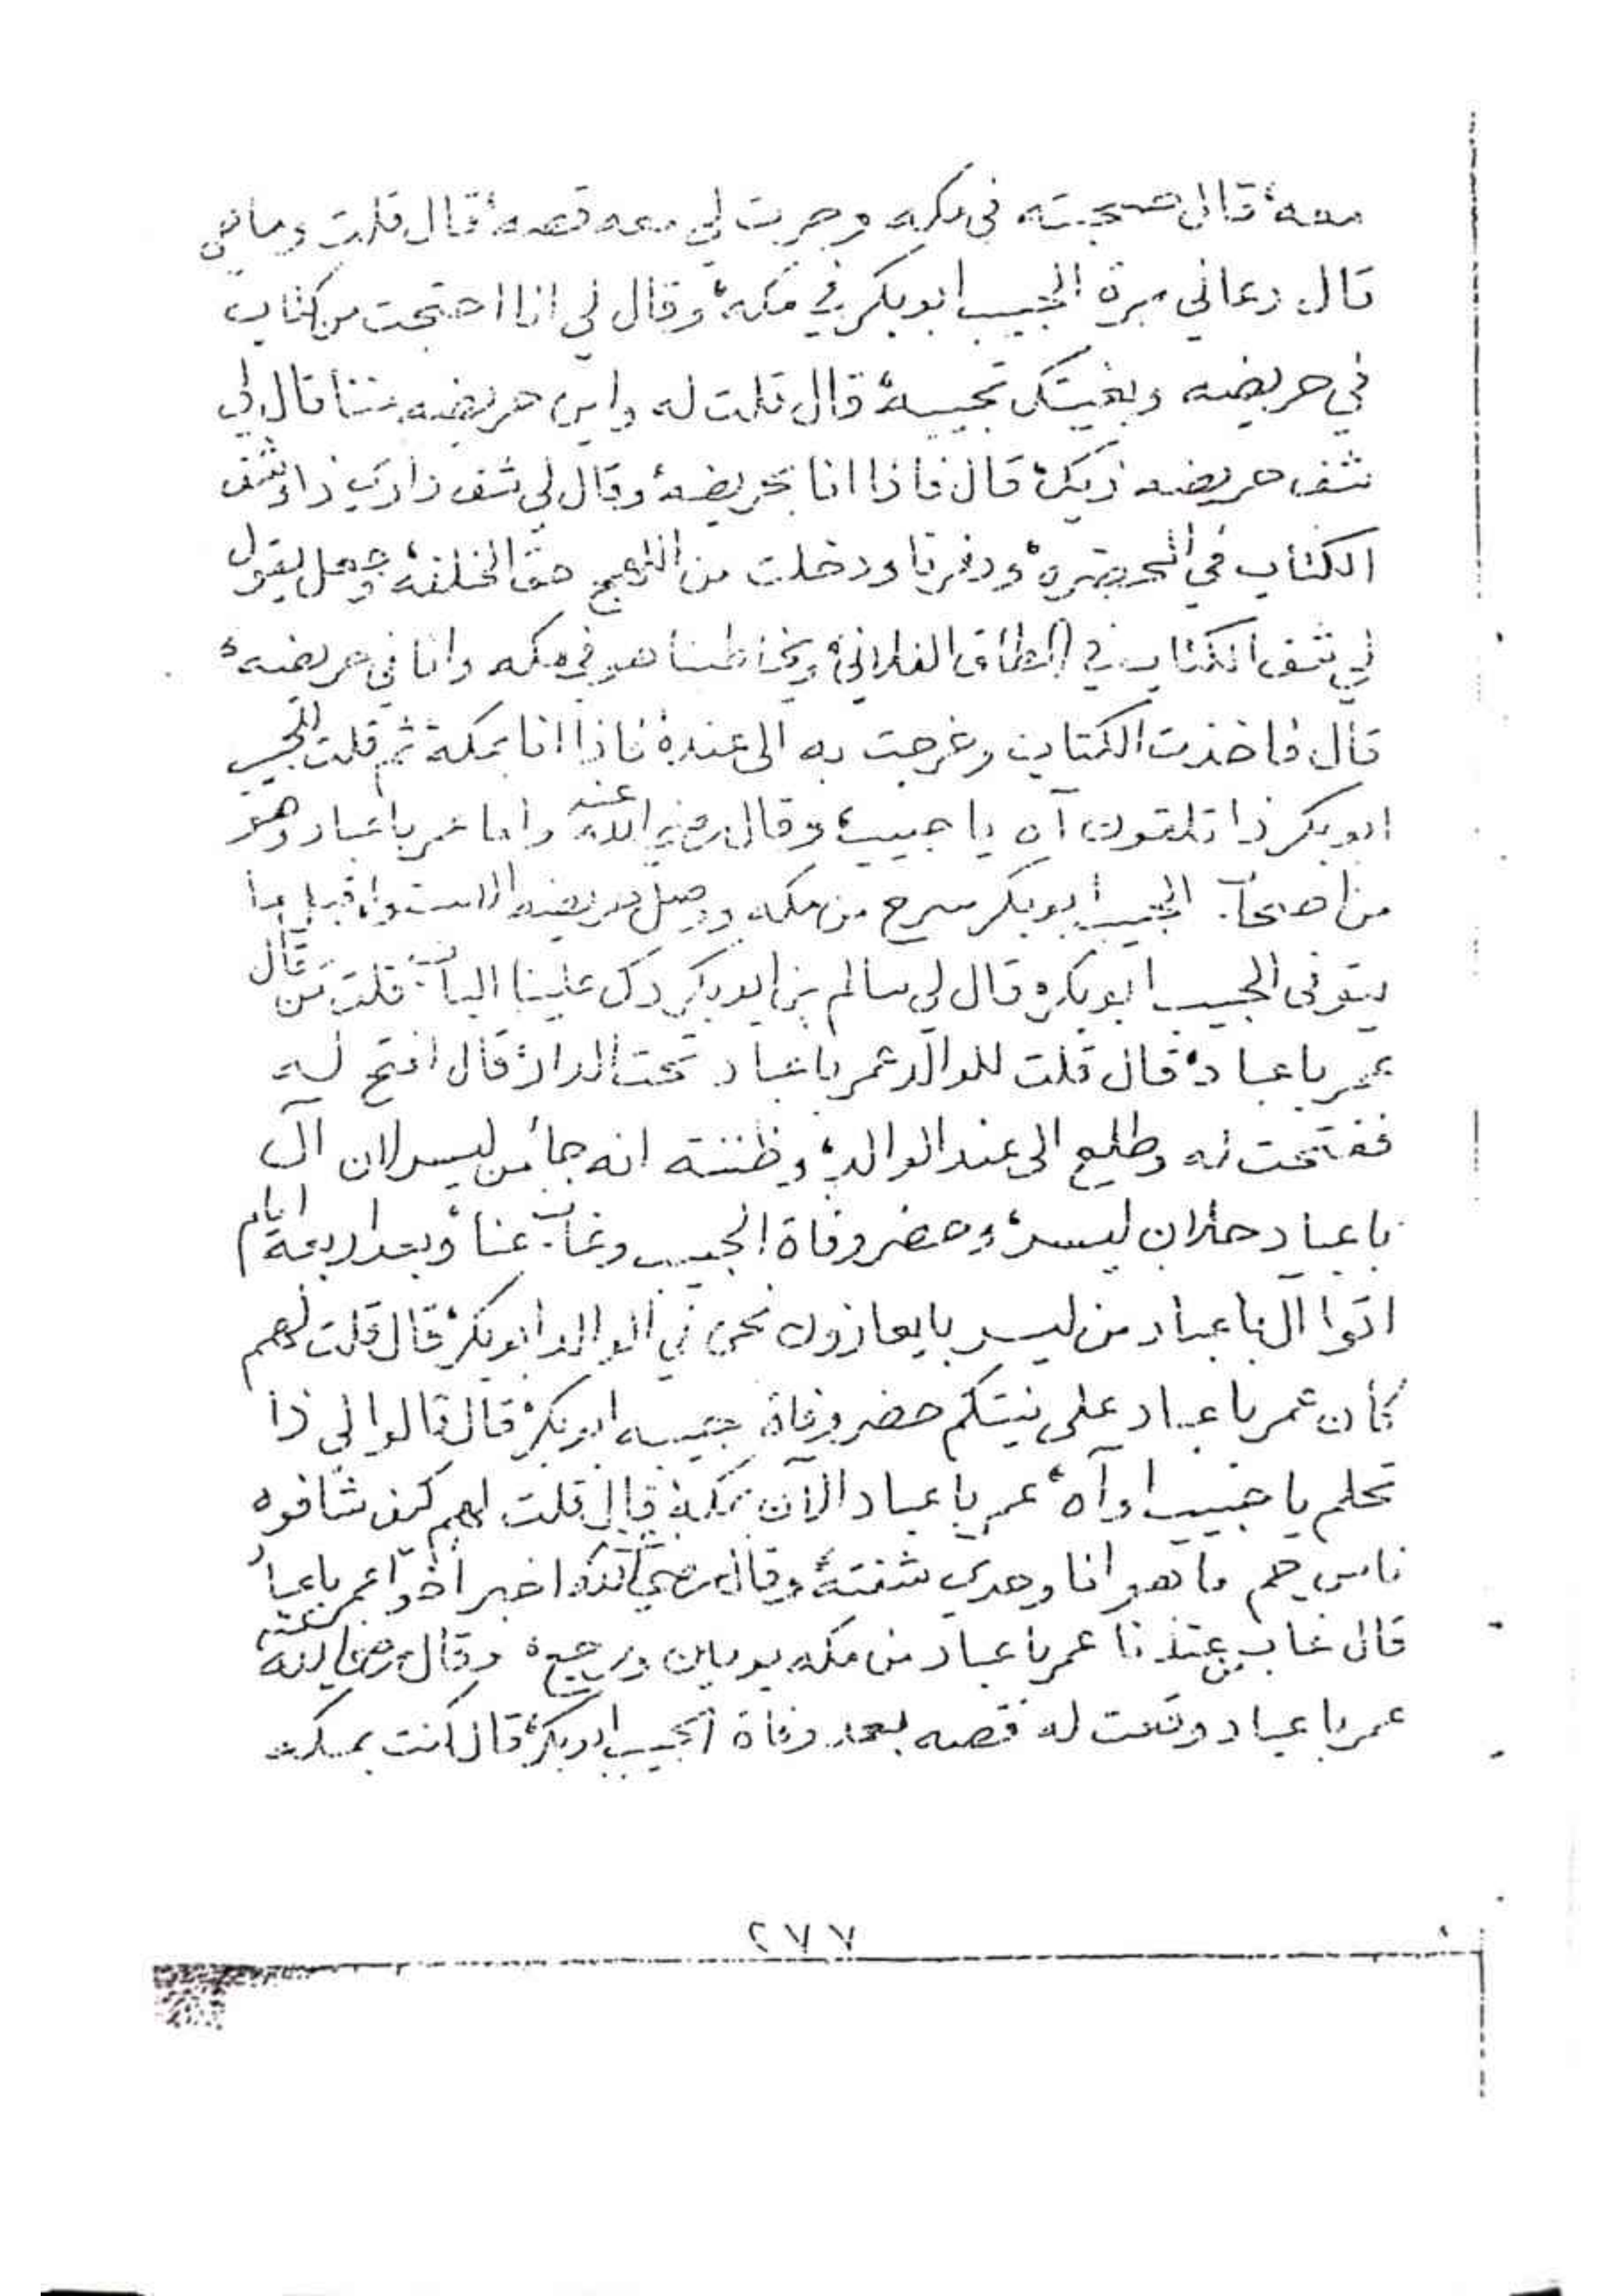 معه، قال صحبته في مكه وجرت لي معه قصه، قال قلت وما هي
قال دعاني مرة الحبيب ابوبكر في مكه، وقال لي انا احتجت من كتاب
في حريضه وبغيتك تجيبه، قال قلت له واين حريضه مننا قال لي
شف حريضه ذيك، قال فاذا انا بحريضه، وقال لي شف داري ذا وشف
الكتاب في ودفرنا ودخلت من حق الخلفه، وجعل يقول
لي شف الكتاب في الطاق الفلاني، ويخاطبنا هو في مكه وانا في حريضه،
قال فاخذت الكتاب وخرجت به الى عنده فاذا انا بمكة ثم قلت للحبيب
ابوبكر ذا تلقون آه يا حبيب، وقال رضي الله عنه واما عمر باعباد وهو
من اصحاب الحبيب ابوبكر سرح من مكه ووصل حريضه قبل ما
يتوفى الحبيب ابوبكر، قال لي سالم بن ابوبكر دك علينا الباب، قلت من قال
عمر باعباد، قال قلت للوالد عمر باعباد تحت الدار، قال افتح له
ففتحت له وطلع الى عند الوالد، وظننته انه جاء من ليسر لان آل
باعباد حلان ليسر، وحضر وفاة الحبيب وغاب عنا، وبعد اربعة ايام
اتوا آل باعباد من ليسر بايعازون نحن في الوالد ابوبكر، قال قلت لهم
كان عمر باعباد على نيتكم حضر وفاة حبيبه ابوبكر، قال قالوا لي ذا
تحلم يا حبيب او آه، عمر باعباد الآن بمكة، قال قلت لهم كيف شافوه
ناس جم ما هو انا وحدي شفته، وقال رضي الله عنه اخبر اخو عمر باعباد
قال غاب من عندنا عمر باعباد من مكه يومين ورجع، وقال رضي الله عنه
عمر باعباد وقعت له قصه بعد وفاة الحبيب ابوبكر، قال كنت بمكه
٢٧٧